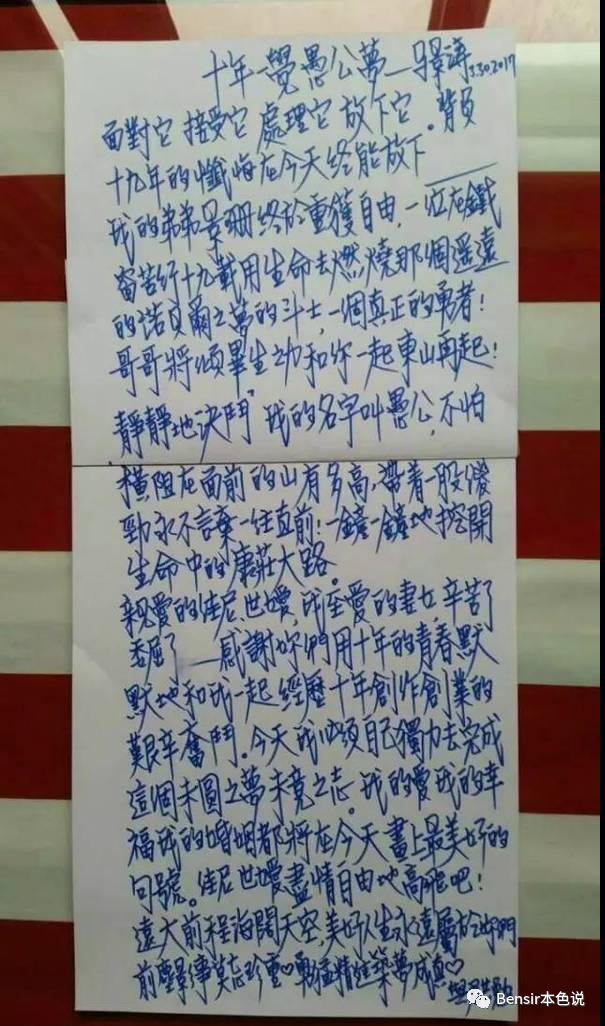 十年一覺愚公夢—馬景濤 3.30.2017
面對它 接受它 處理它 放下它。背負
十九年的懺悔在今天终能放下——
我的弟弟景珊終於重獲自由,一位在鐵
窗苦行十九載用生命去燃燒那個遥遠
的諾貝爾之夢的斗士,一個真正的勇者!
哥哥將傾畢生之功和你一起東山再起!
靜靜地決鬥 我的名字叫愚公,不怕
橫阻在面前的山有多高,帶着一股傻
勁永不言棄一往直前!一鏟一鏟地挖開
生命中的康莊大路。
親愛的佳尼、世嫒,我至愛的妻女,辛苦了
委屈了——感謝妳們用十年的青春默
默地和我一起經歷十年創作創業的
艱辛奮鬥。今天我必須自己獨力去完成
這個未圓之夢未竟之志。我的愛我的幸
福我的婚姻都將在今天畫上最美好的
句號。佳尼世嫒盡情自由地高飛吧!
遠大前程海闊天空,美好人生永遠屬於妳們
前塵舊事莫忘珍重♡勇猛精進築夢成真♡
Bensir本色说